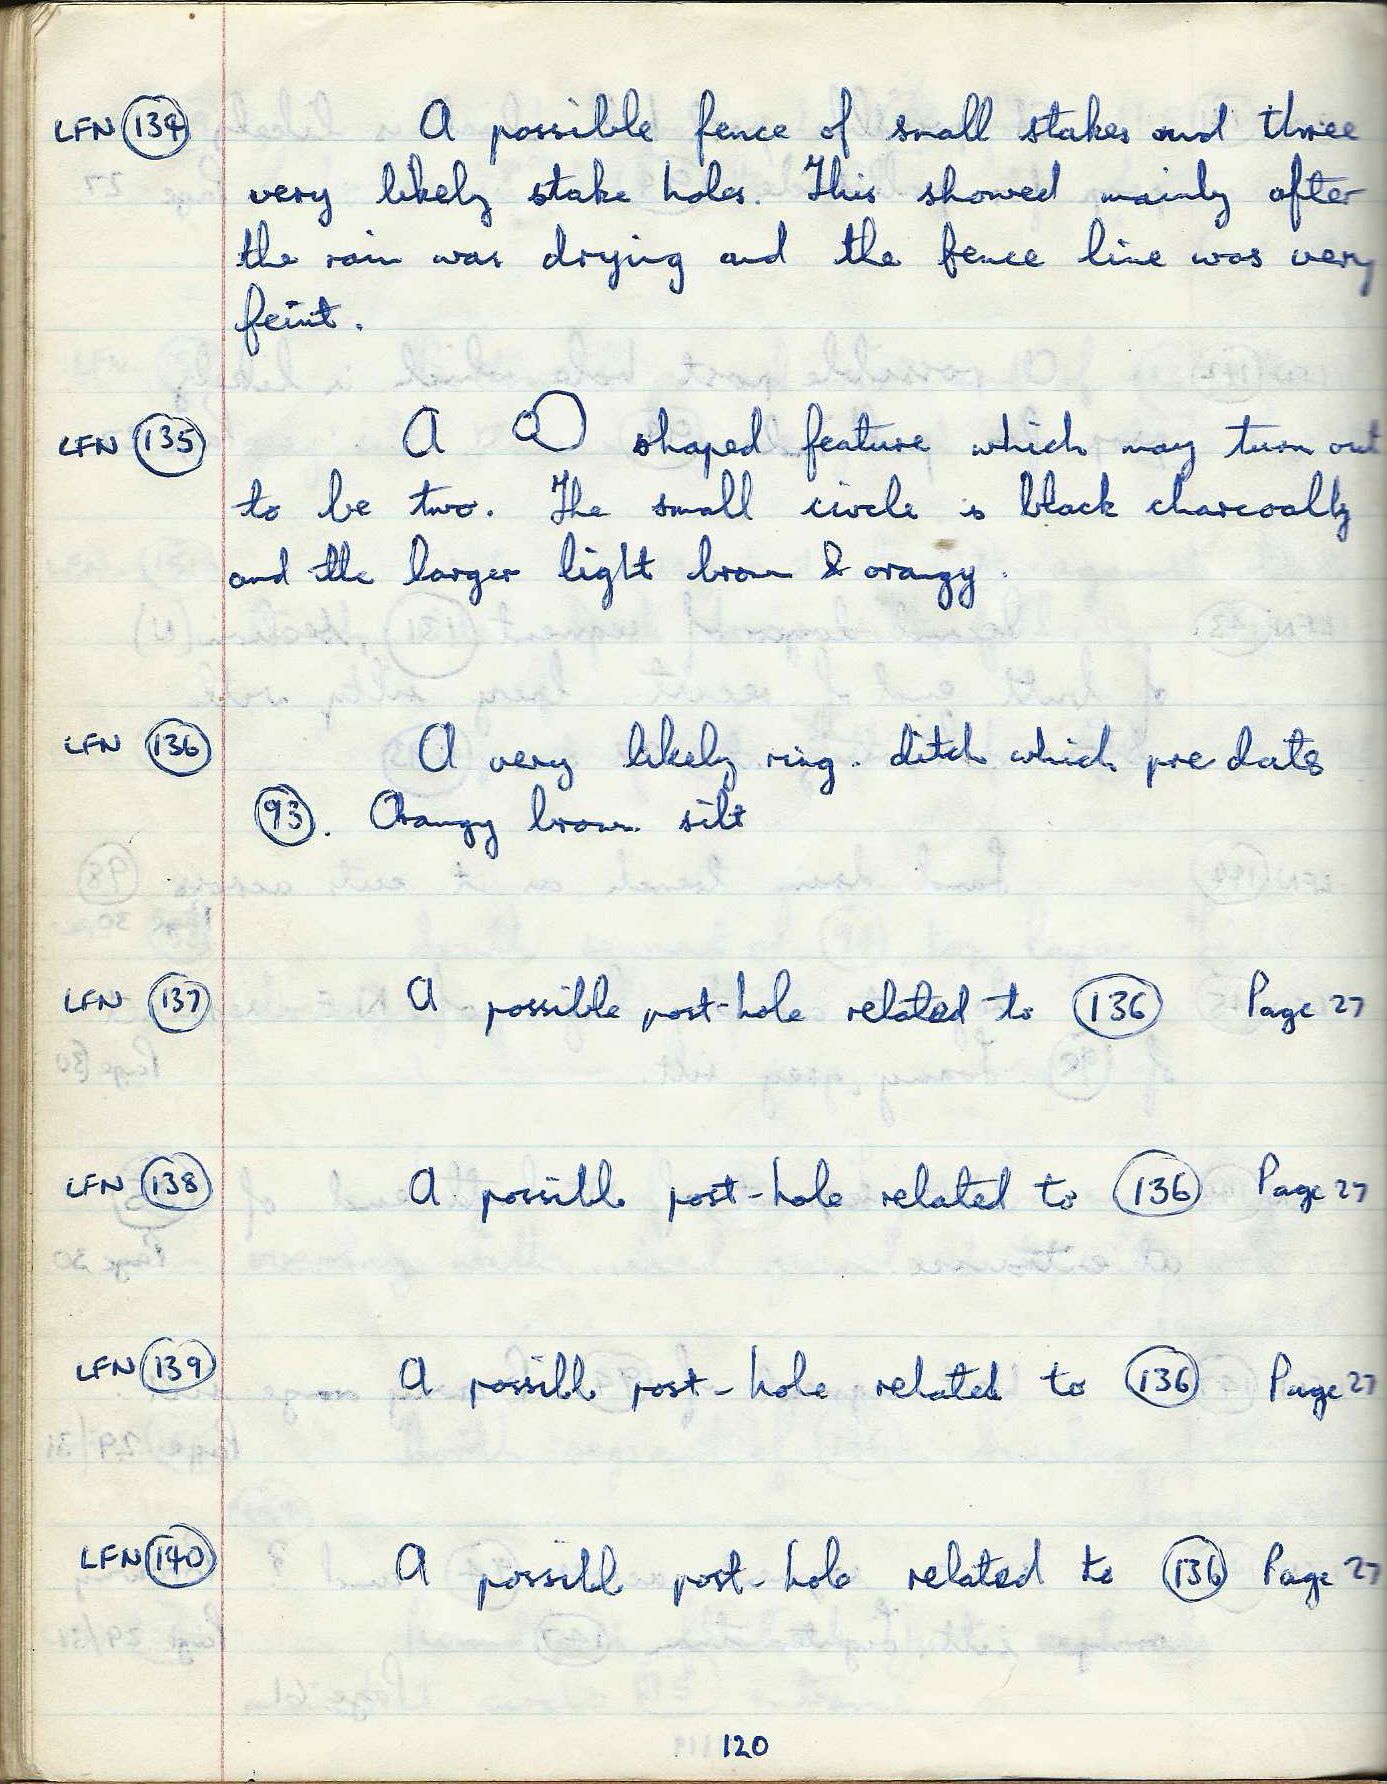 LFN 134 A possible fence of small stakes and three
very likely stake holes. This showed mainly after
the rain was drying and the fence line was very
feint.
LFN 135 A shaped feature which may turn out
to be two. The small circle is black charcoally
and the larger light brown & orangy.
LFN 136 A very likely ring. ditch which pre dates
93. Orangy brown silt
LFN 137 A possible post-hole related to 136 Page 27
LFN 138 A possible post-hole related to 136 Page 27
LFN 139 A possible post-hole related to 136 Page 27
LFN 140 A possible post-hole related to 136 Page 27
120